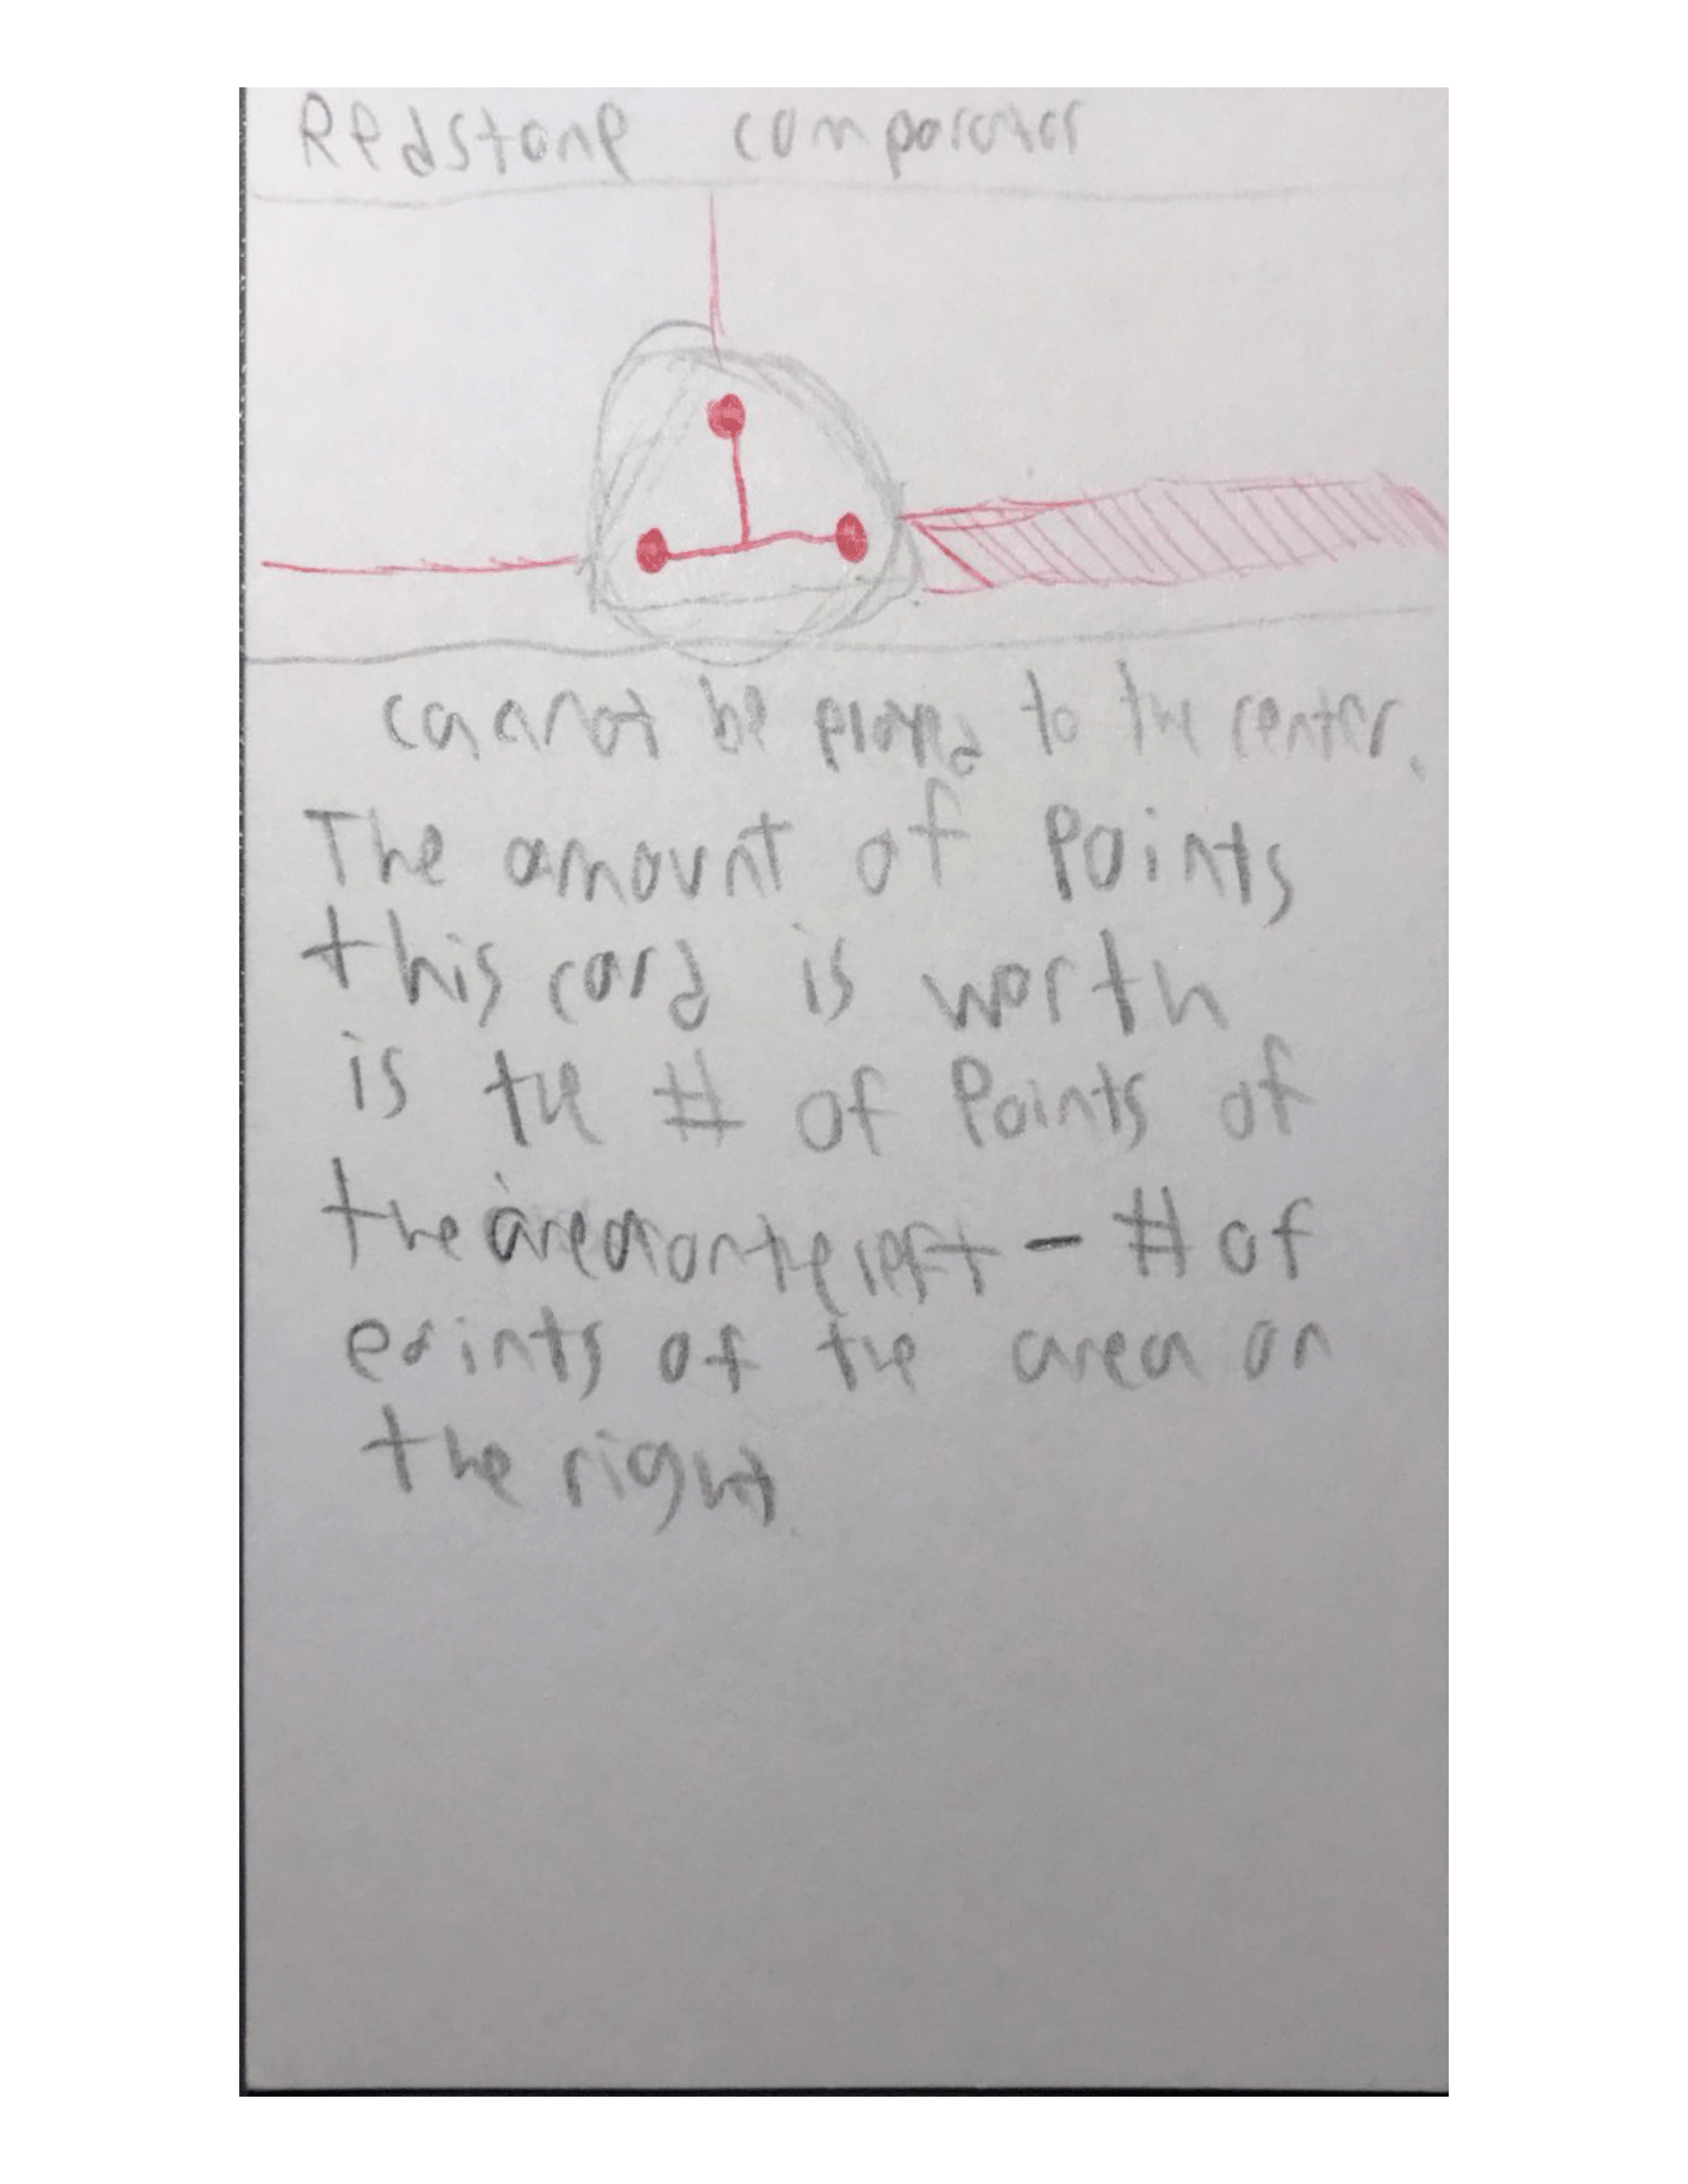 Redstone comparator
cannot be played to the center.
The amount of points
this card is worth
is the # of Points of
the area on the left - # of
points of the area on
the right.